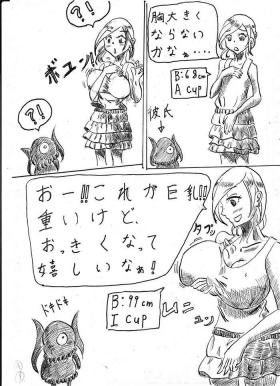 胸大きく
ならない
かなぁ…
B:68cm
A cup
彼氏
?!
ボユン!!
?!
おー!!これが巨乳!!
重いけど、
おっきくなって
嬉しいなぁ!
タプッ
B:99cm
I cup
ドキドキ